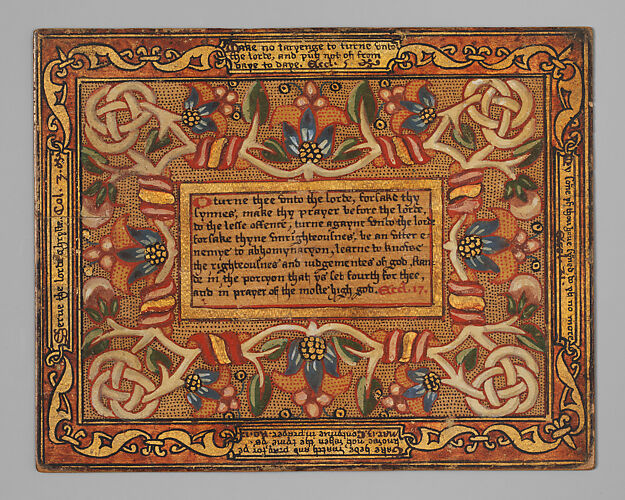 Make no taryenge to turne vnto
the lorde, and put not of from
daye to daye. Eccl. 5
O turne thee vnto the lorde, forsake thy
synnes, make thy prayer before the lorde,
do the lesse offence, turne agayne vnto the lorde
forsake thyne vnrighteousnes, be an vtter e-
nemye to abhomynacyon, learne to knowe
the righteousnes and iudgementes of god, stan-
de in the porcyon that ys set fourth for thee,
and in prayer of the moste high god. Eccl. 17.
Serue the lorde chryste. Col. 3.
Take hede, watch and pray for ye
knowe not when the tyme ys